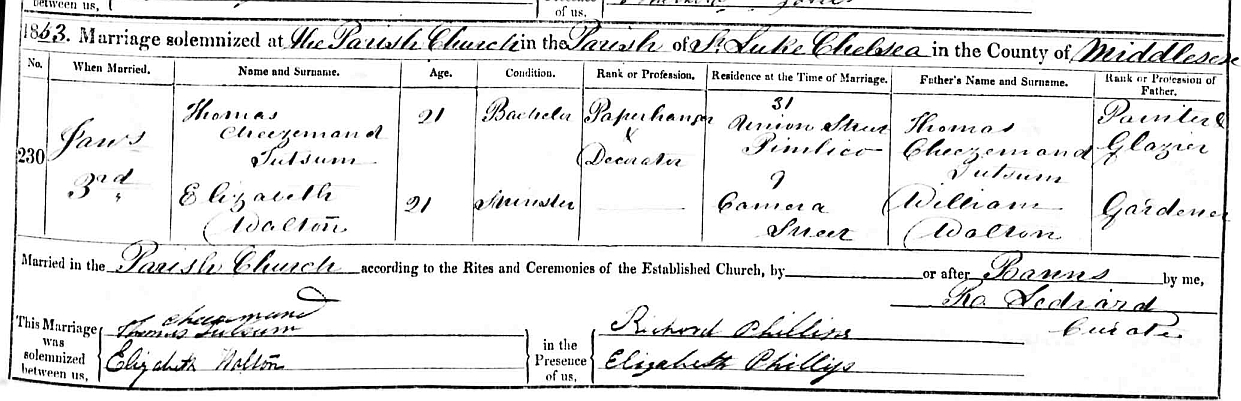 between us,
of us.
1853. Marriage solemnized at the Parish Church in the Parish of St. Luke Chelsea in the County of Middlesex
No. When Married. Name and Surname. Age. Condition. Rank or Profession. Residence at the Time of Marriage. Father's Name and Surname. Rank or Profession of Father.
230 Jany 3rd Thomas Cheezemand Sutsum 21 Bachelor Paperhanger & Decorator 31 Union Street Pimlico Thomas Cheezemand Sutsum Painter & Glazier
Elizabeth Walton 21 Spinster 9 Camera Street William Walton Gardener
Married in the Parish Church according to the Rites and Ceremonies of the Established Church, by or after Banns by me,
Ro. Lediard
Curate
This Marriage was solemnized between us, Thomas Cheezemand Sutsum in the Presence of us, Richard Phillips
Elizabeth Walton Elizabeth Phillips